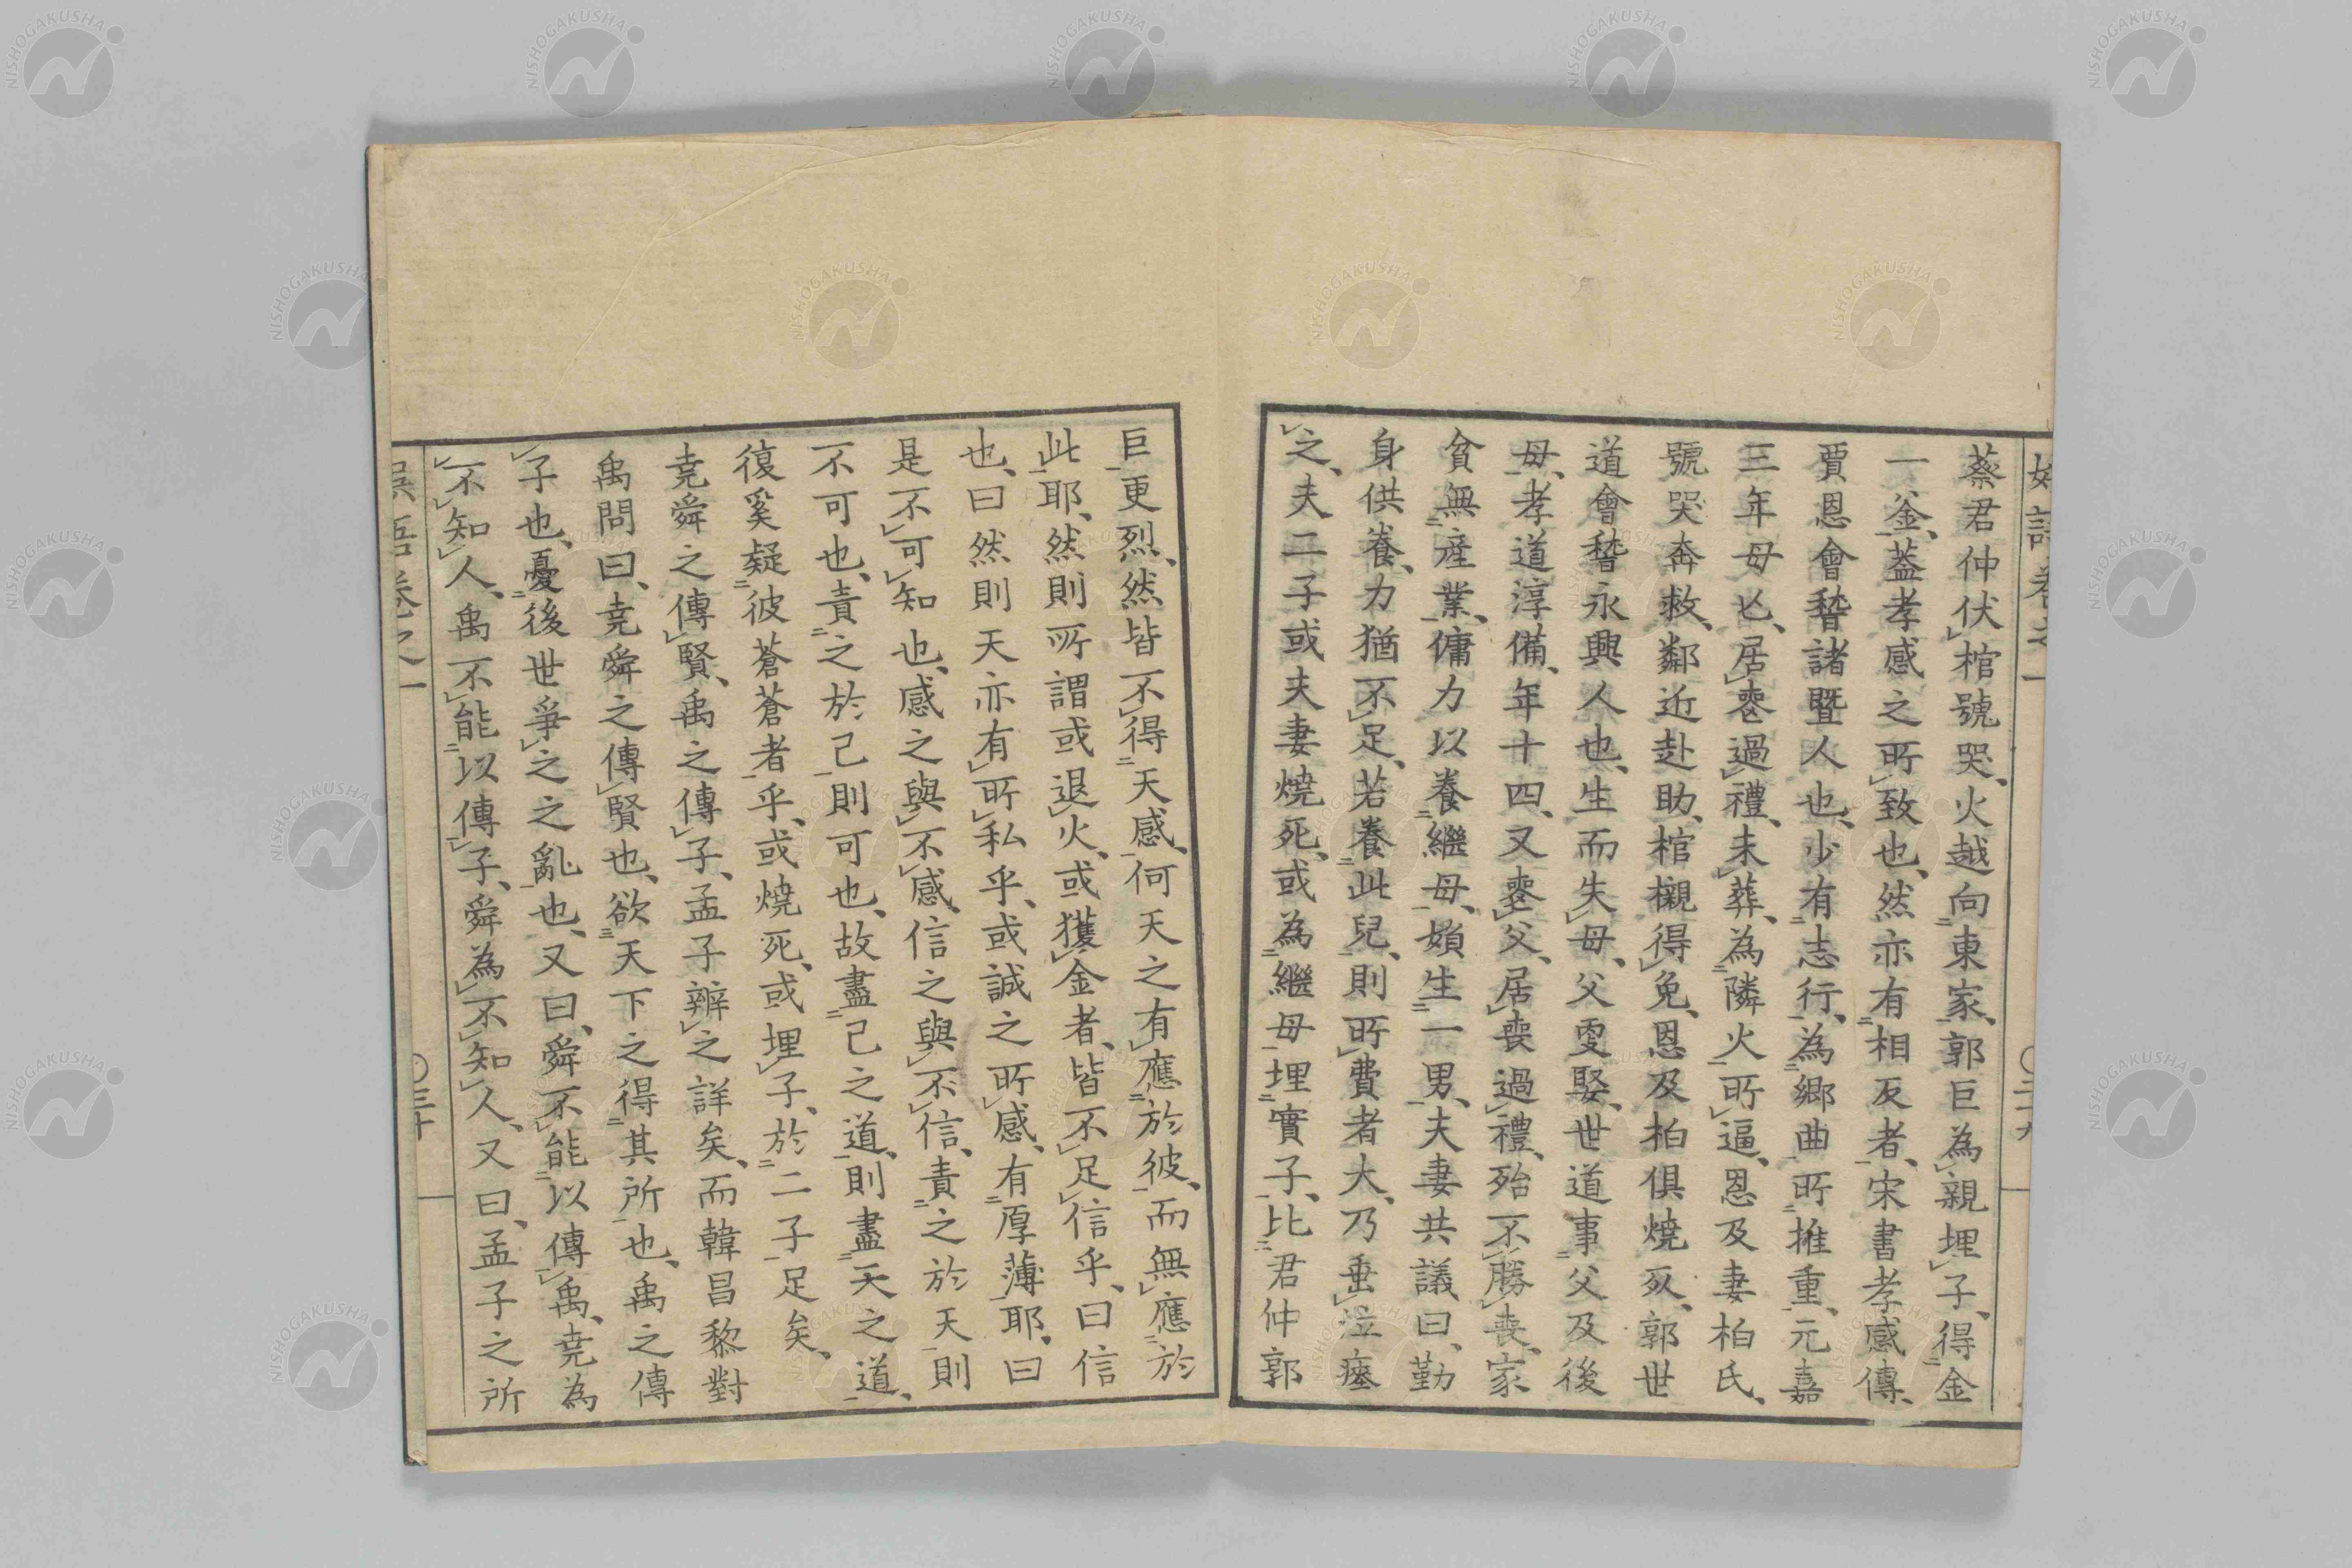 蔡君仲伏棺號哭、火越向東家、郭巨為親埋子、得金
一釜、蓋孝感之所致也、然亦有相反者、宋書孝感傳、
賈恩會稽諸曁人也、少有志行、為郷曲所推重、元嘉
三年母亡、居喪過禮、未葬、為隣火所逼、恩及妻柏氏、
號哭奔救、鄰近赴助、棺櫬得免、恩及柏俱燒死、郭世
道會稽永興人也、生而失母、父更娶、世道事父及後
母、孝道淳備、年十四、又喪父、居喪過禮、殆不勝喪、家
貧無産業、傭力以養繼母、婦生一男、夫妻共議曰、勤
身供養、力猶不足、若養此兒、則所費者大、乃垂泣瘞
之、夫二子或夫妻燒死、或為繼母埋實子、比君仲郭
巨更烈、然皆不得天感、何天之有應於彼、而無應於
此耶、然則所謂或退火、或獲金者、皆不足信乎、曰信
也、曰然則天亦有所私乎、或誠之所感、有厚薄耶、曰
是不可知也、感之與不感、信之與不信、責之於天則
不可也、責之於己則可也、故盡己之道、則盡天之道、
復奚疑彼蒼蒼者乎、或燒死、或埋子、於二子足矣、
堯舜之傳賢、禹之傳子、孟子辨之詳矣、而韓昌黎對
禹問曰、堯舜之傳賢也、欲天下之得其所也、禹之傳
子也、憂後世爭之之亂也、又曰、舜不能以傳禹、堯為
不知人、禹不能以傳子、舜為不知人、又曰、孟子之所
卷之一
〇二十九
〇三十